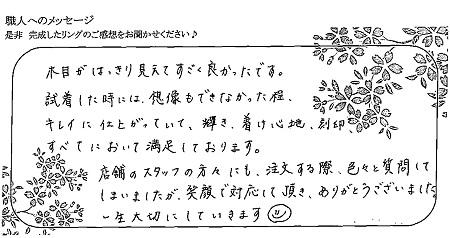 職人へのメッセージ
是非 完成したリングのご感想をお聞かせください♪
木目がはっきり見えてすごく良かったです。
試着した時には、想像もできなかった程、
キレイに仕上がっていて、輝き、着け心地、刻印
すべてにおいて満足しております。
店舗のスタッフの方々にも、注文する際、色々と質問して
しまいましたが、笑顔で対応して頂き、ありがとうございました
一生大切にしていきます